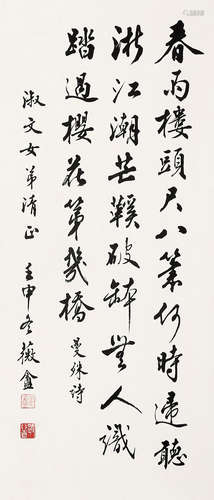 春雨樓頭尺八簫何時歸聽
浙江潮芒鞵破缽無人識
踏過櫻花第幾橋 曼殊詩
淑文女弟清正 壬申冬薇盦